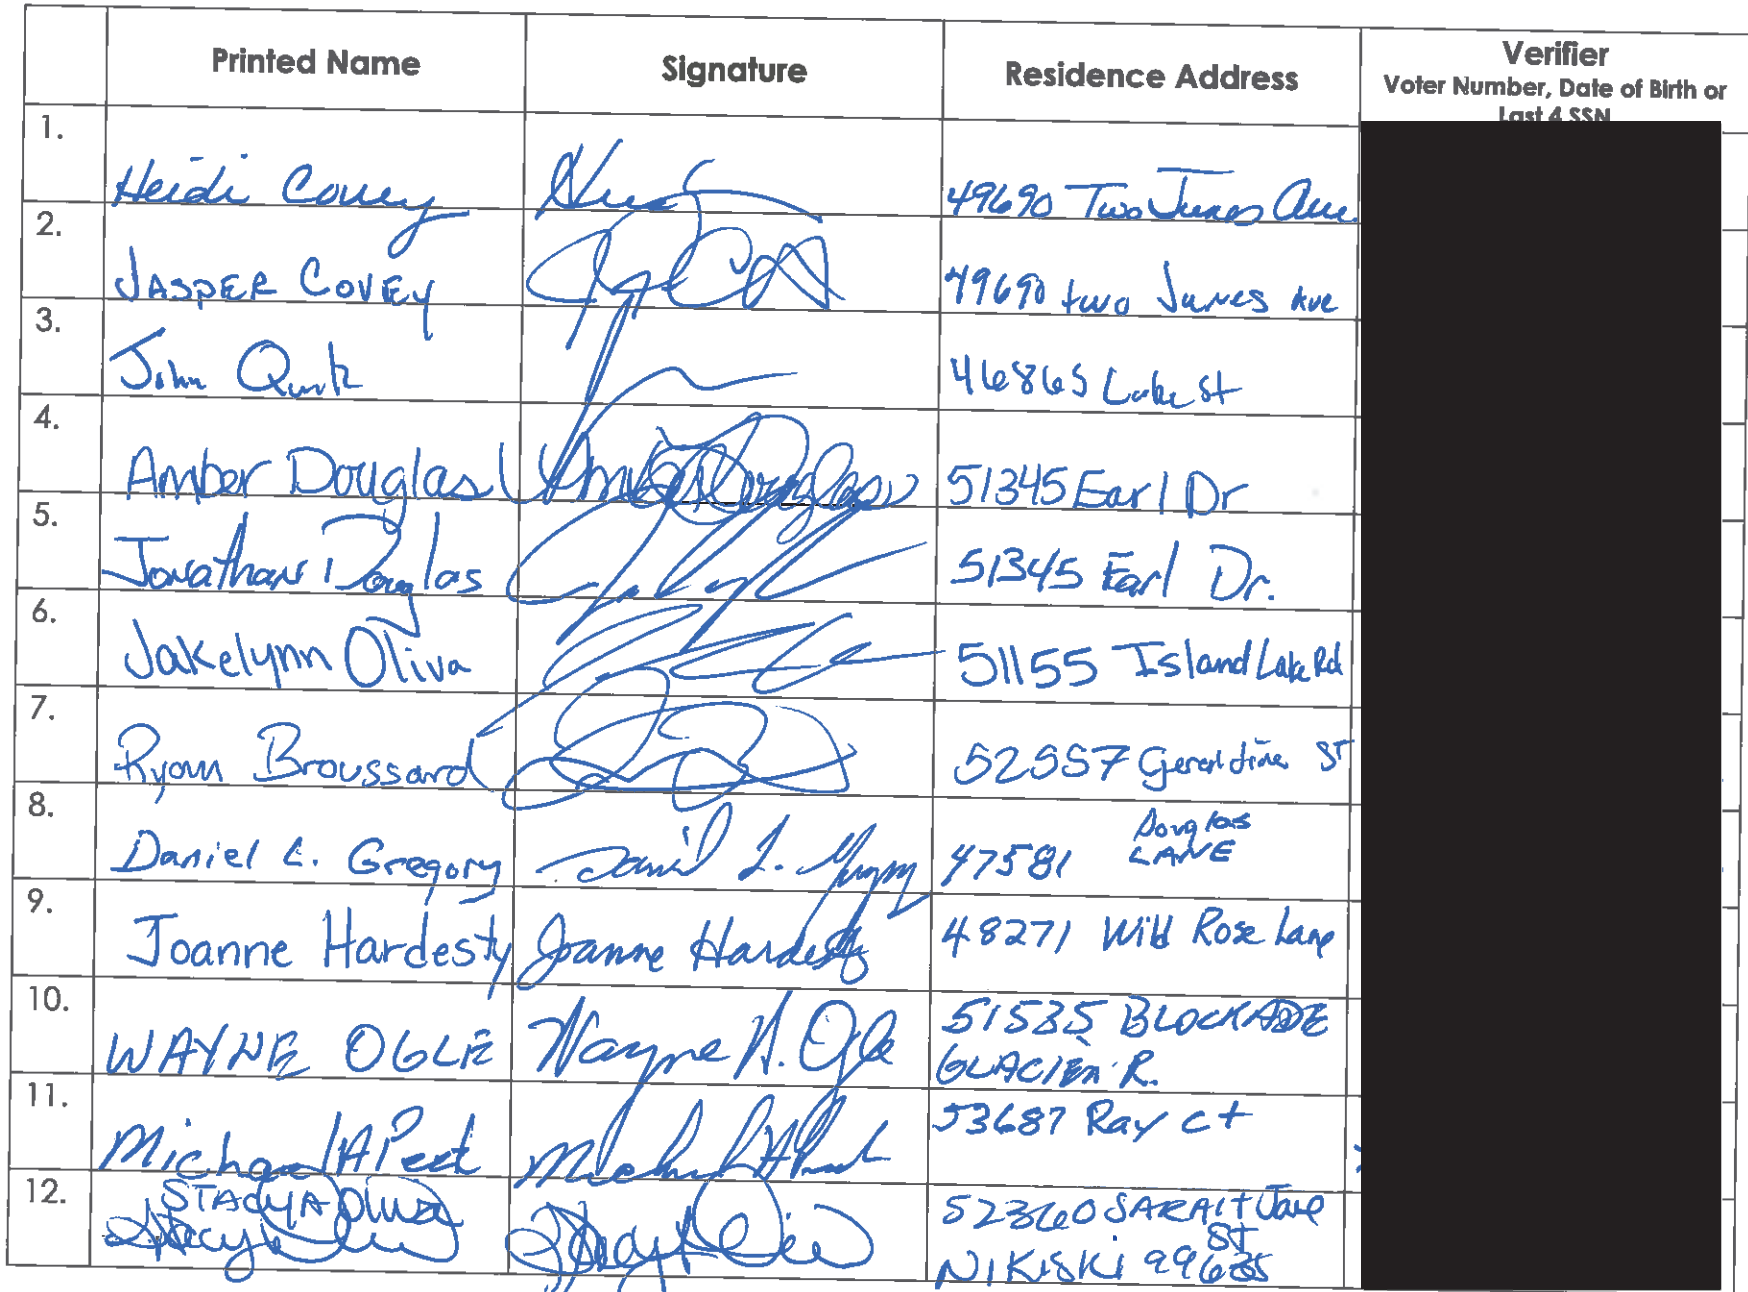 Printed Name Signature Residence Address Verifier
Voter Number, Date of Birth or
Last 4 SSN
1. Heidi Covey 49690 Two Junes Ave.
2. JASPER COVEY 49690 two Junes Ave
3. John Quirk 46865 Lake St
4. Amber Douglas Amber Douglas 51345 Earl Dr
5. Jonathan Douglas 51345 Earl Dr.
6. Jakelynn Oliva 51155 Island Lake Rd
7. Ryan Broussard 52557 Geraldine ST
8. Daniel L. Gregory Daniel L. Gregory 47581 Douglas
LANE
9. Joanne Hardesty Joanne Hardesty 48271 Wild Rose Lane
10. WAYNE OGLE Wayne H. Ogle 51535 BLOCKADE
GLACIER R.
11. Michael A Peet 53687 Ray ct
12. STACY A Oliva 52360 SARAH Jane
St
NIKISKI 99635